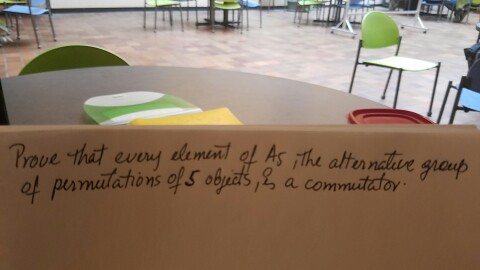 Prove that every element of A5, the alternative group
of permutations of 5 objects, is a commutator.